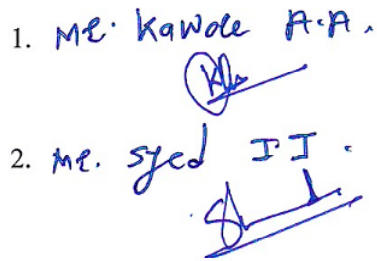 1. Mr. Kawole A.A.
2. Mr. Syed I I.